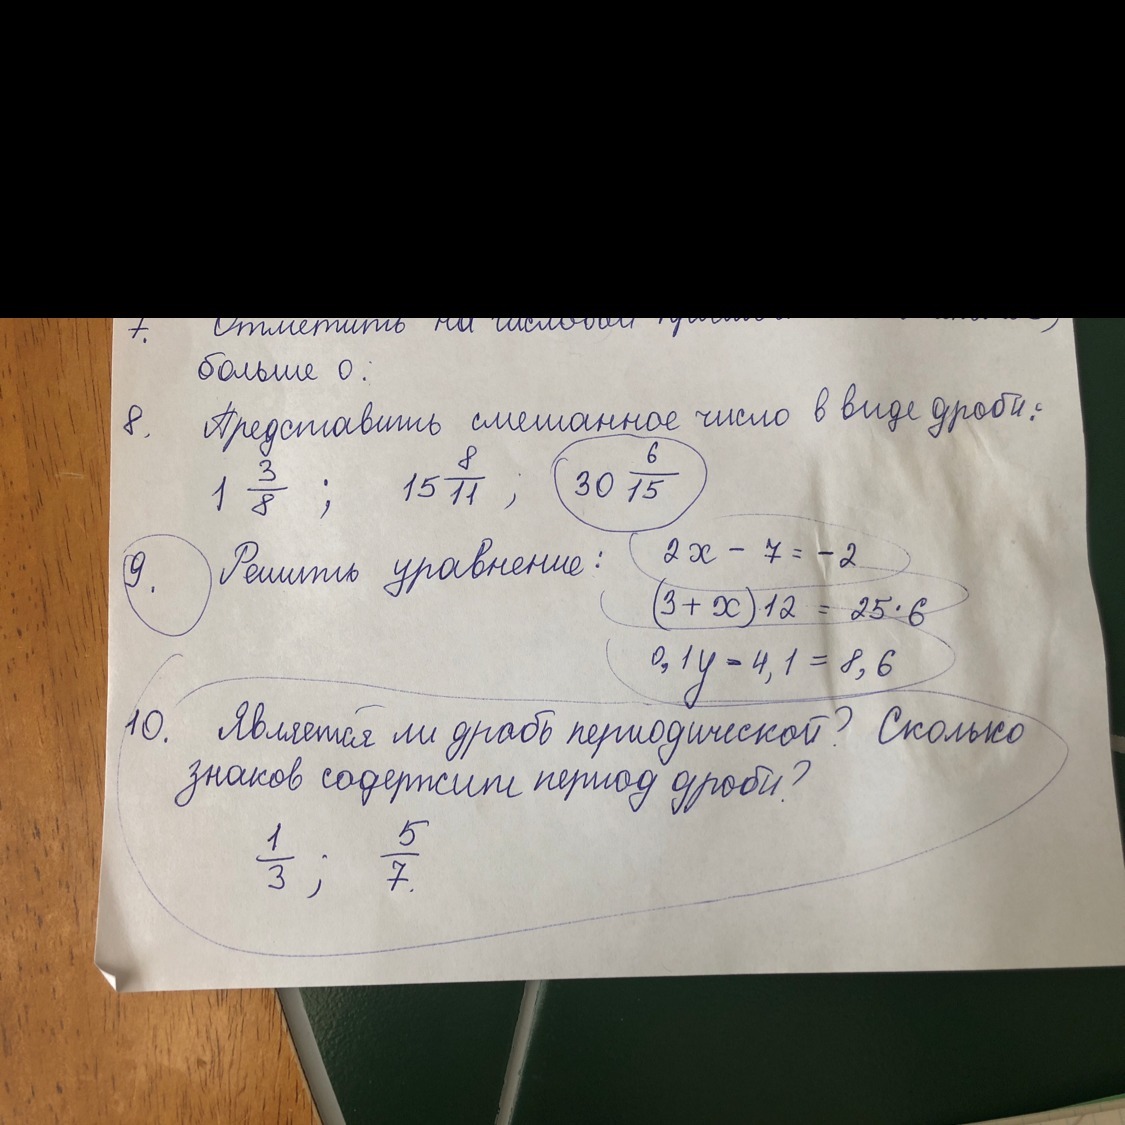 7. Отметить на числовой
больше 0:
8. Представить смешанное число в виде дроби:
1 3/8 ; 15 8/11 ; 30 6/15
9. Решить уравнение: 2x - 7 = -2
(3 + x) 12 = 25·6
0,1y - 4,1 = 8,6
10. Является ли дробь периодической? Сколько
знаков содержит период дроби?
1/3 ; 5/7.